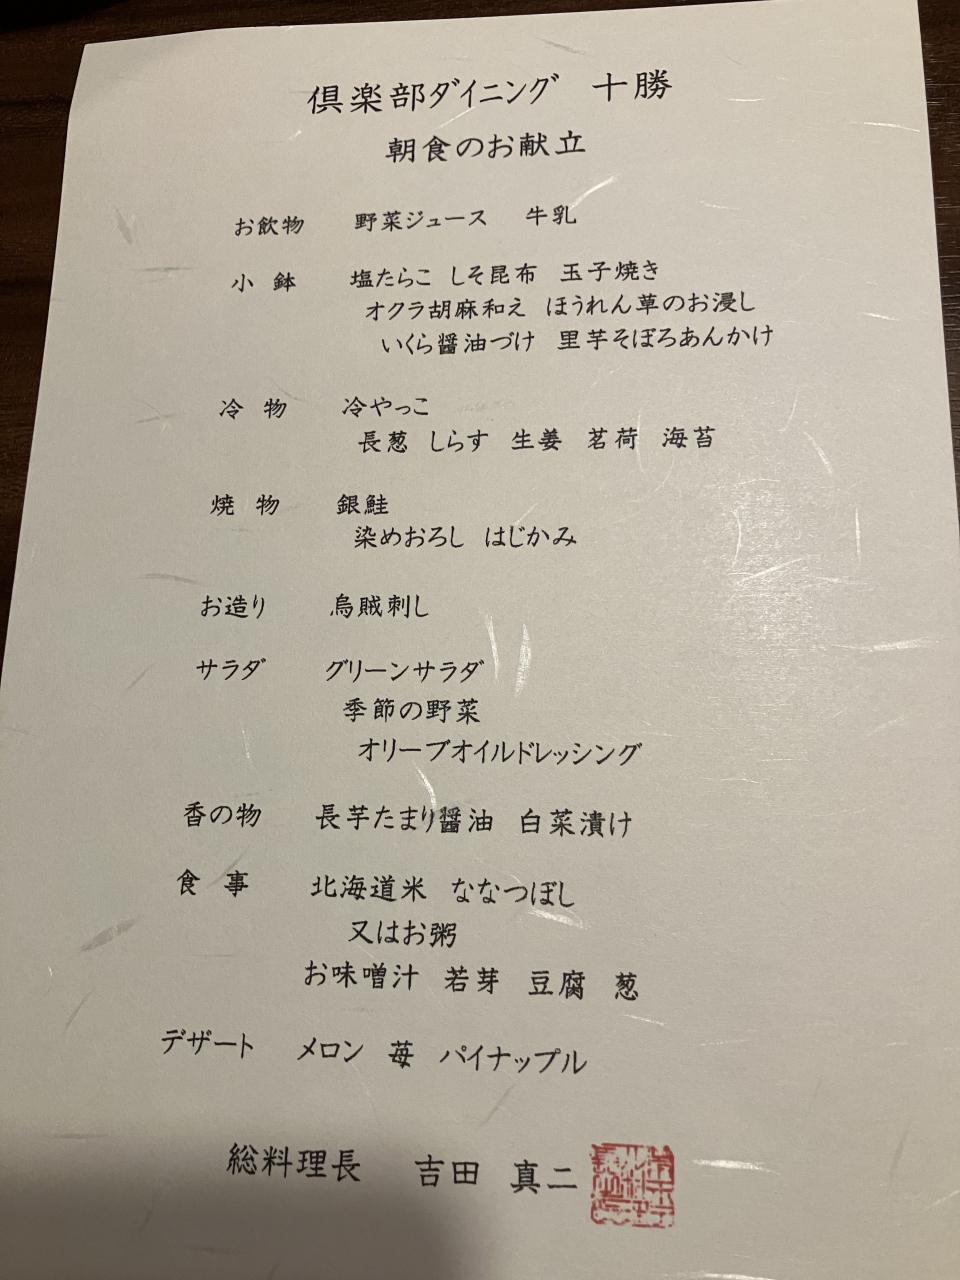 倶楽部ダイニング 十勝
朝食のお献立
お飲物 野菜ジュース 牛乳
小鉢 塩たらこ しそ昆布 玉子焼き
オクラ胡麻和え ほうれん草のお浸し
いくら醤油づけ 里芋そぼろあんかけ
冷物 冷やっこ
長葱 しらす 生姜 茗荷 海苔
焼物 銀鮭
染めおろし はじかみ
お造り 烏賊刺し
サラダ グリーンサラダ
季節の野菜
オリーブオイルドレッシング
香の物 長芋たまり醤油 白菜漬け
食事 北海道米 ななつぼし
又はお粥
お味噌汁 若芽 豆腐 葱
デザート メロン 苺 パイナップル
総料理長 吉田 真二